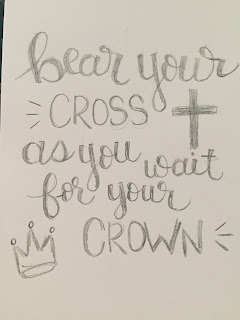 bear your
CROSS
as you wait
for your
CROWN